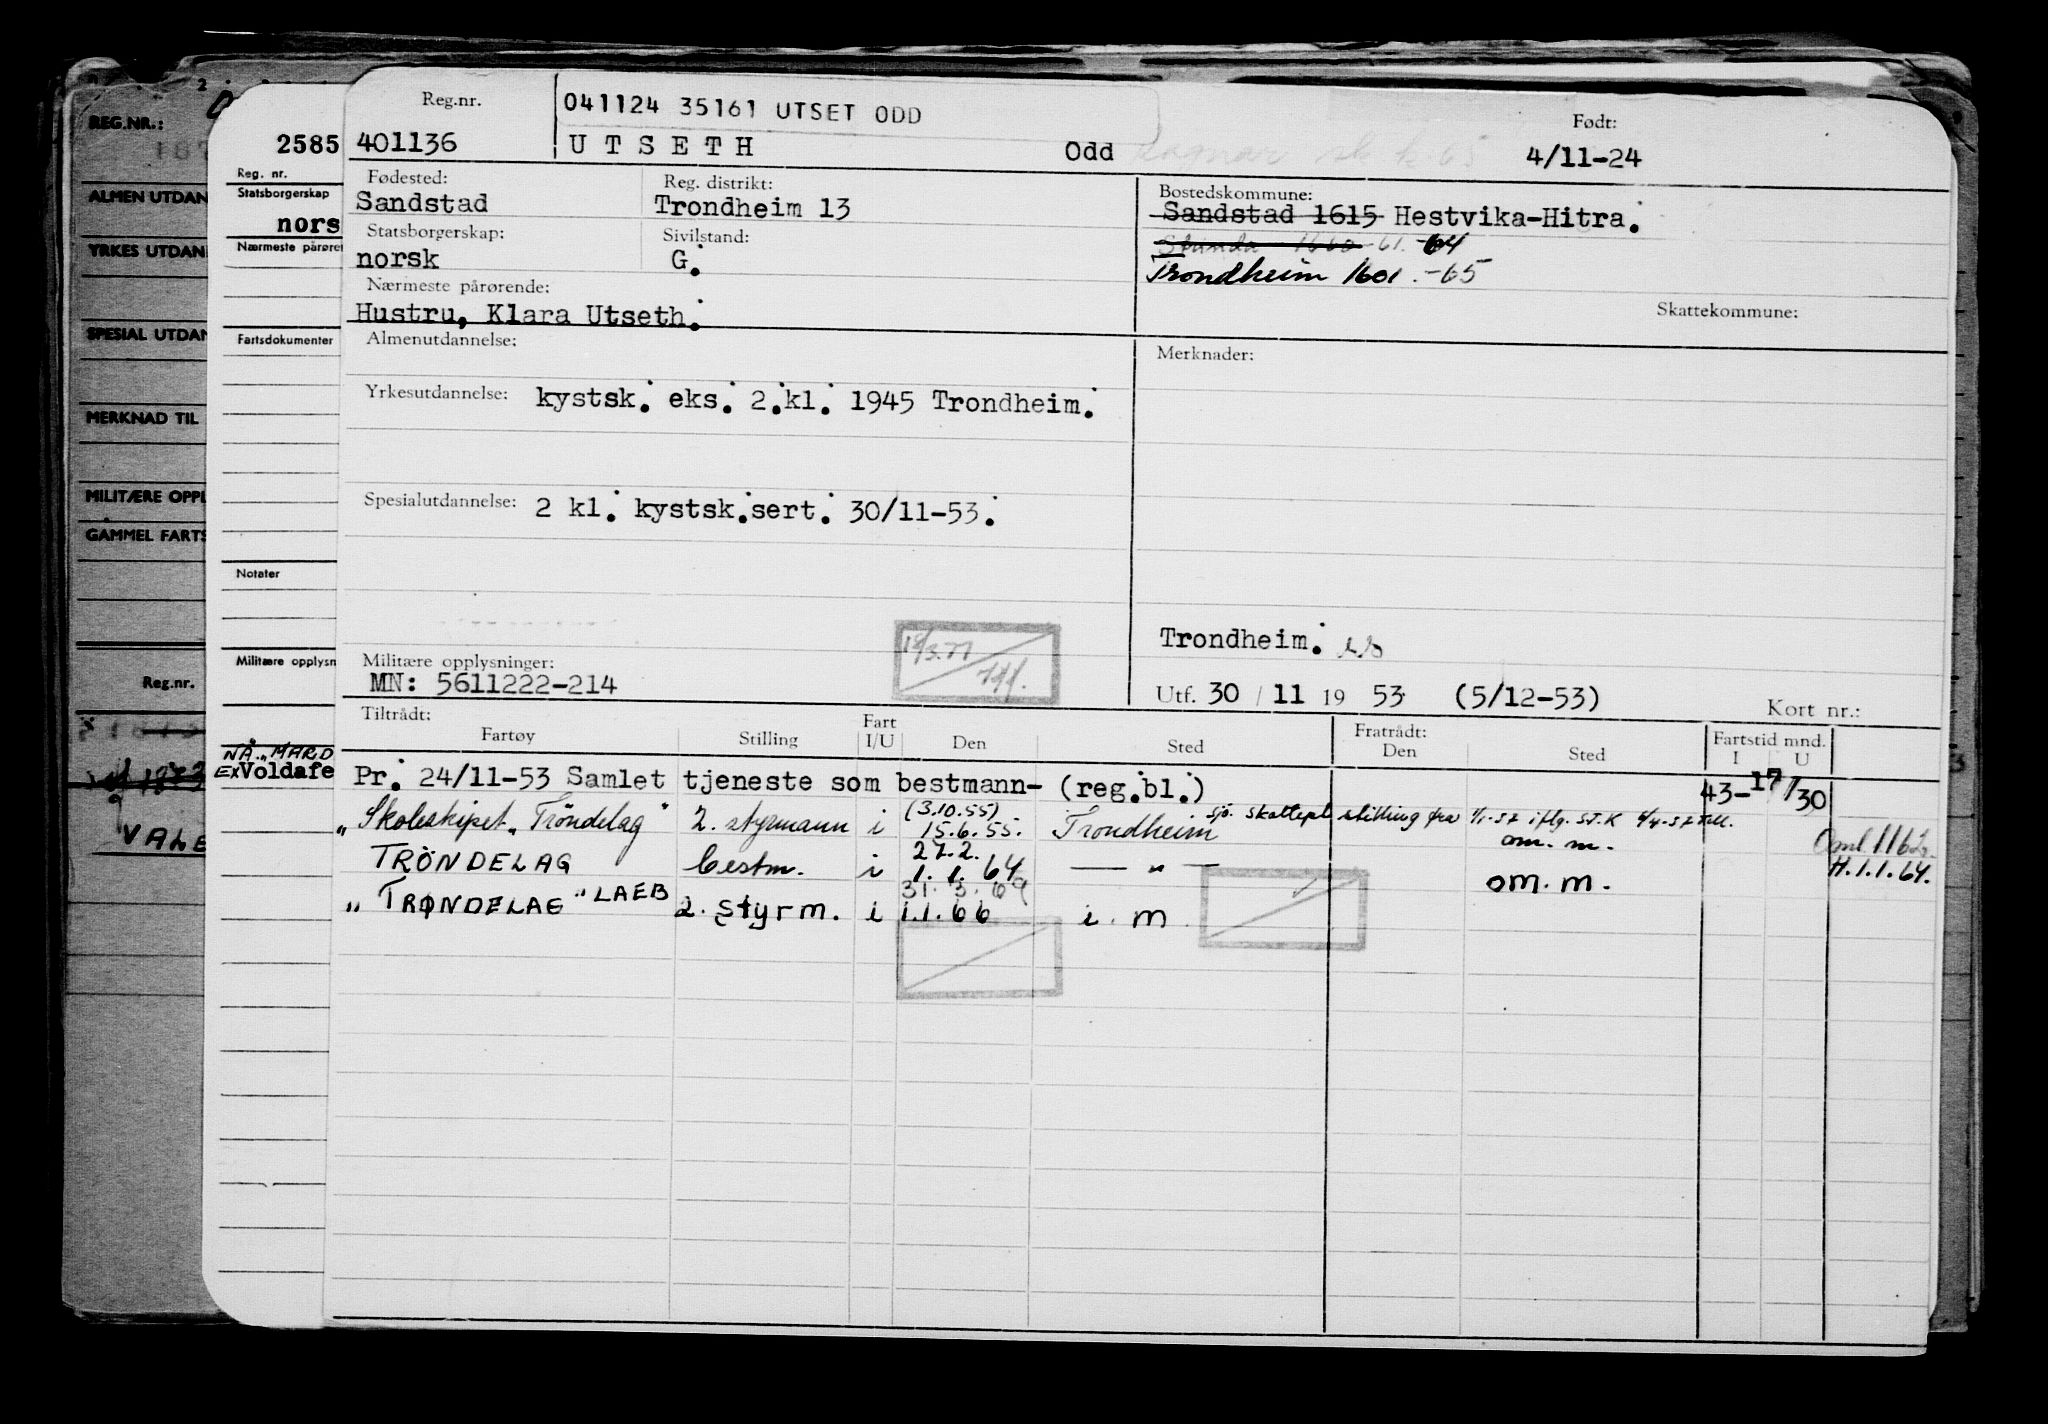 REG.NR.:
ALMEN UTDAN
YRKES UTDAN
SPESIAL UTDAN
MERKNAD TIL
MILITÆRE OPPL
GAMMEL FARTS
Reg.nr.
VALE
2585
Reg. nr.
Statsborgerskap
nors
Nærmeste pårøre
Fartsdokumenter
Notater
Militære opplysn
NÅ „MARD
EX Voldafe
Reg.nr.
041124 35161 UTSET ODD
401136 UTSETH Odd Ragnar
Født:
4/11-24
Fødested: Reg. distrikt: Bostedskommune:
Sandstad Trondheim 13 Sandstad 1615 Hestvika-Hitra.
Statsborgerskap: Sivilstand: Strinda 1660 -61. -64
norsk G. Trondheim 1601 .-65
Nærmeste pårørende:
Hustru, Klara Utseth. Skattekommune:
Almenutdannelse: Merknader:
Yrkesutdannelse: kystsk. eks. 2.kl. 1945 Trondheim.
Spesialutdannelse: 2 kl. kystsk.sert. 30/11-53.
Trondheim.
Militære opplysninger:
MN: 5611222-214
Utf. 30 / 11 19 53 (5/12-53) Kort nr.:
Tiltrådt: Fart Fratrådt: Fartstid mnd.
Fartøy Stilling I/U Den Sted Den Sted I U
Pr. 24/11-53 Samlet tjeneste som bestmann- (reg.bl.) 43-17/30
(3.10.55)
„Skoleskipet „Tröndelag" 2. styrmann i 15.6.55. Trondheim
om. m.
27.2.
TRÖNDELAG bestm. i 1.1.64 — " — H.1.1.64.
31.3.69 om. m.
„TRØNDELAG" LAEB 2. styrm. i 1.1.66 i. m